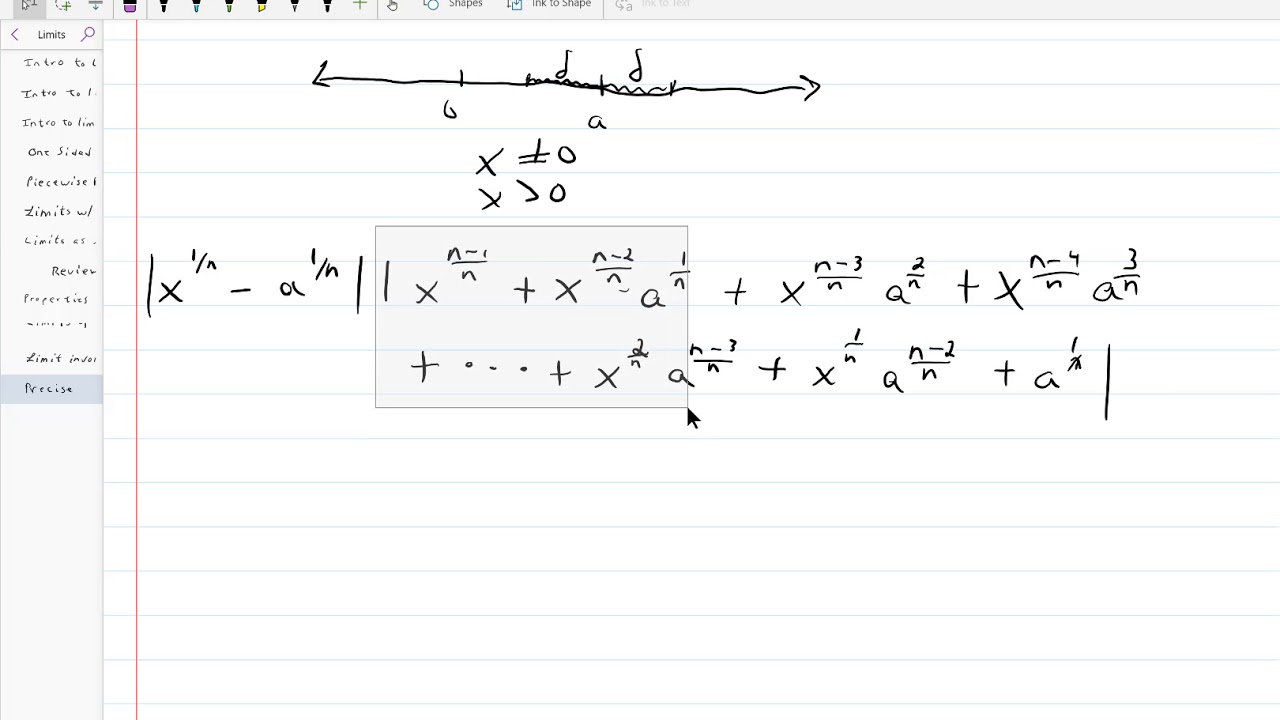 Shapes Ink to Shape Ink to Text
Limits
Intro to l
Intro to l.
Intro to lim
One Sided
Piecewise f
Limits w/
Limits as .
Review
Properties
Limit invol
Precise
δ δ
0 a
x ≠ 0
x > 0
|x^{1/n} - a^{1/n}| |x^{\frac{n-1}{n}} + x^{\frac{n-2}{n}} a^{\frac{1}{n}} + x^{\frac{n-3}{n}} a^{\frac{2}{n}} + x^{\frac{n-4}{n}} a^{\frac{3}{n}}
+ ... + x^{\frac{2}{n}} a^{\frac{n-3}{n}} + x^{\frac{1}{n}} a^{\frac{n-2}{n}} + a^{\frac{1}{n}}|